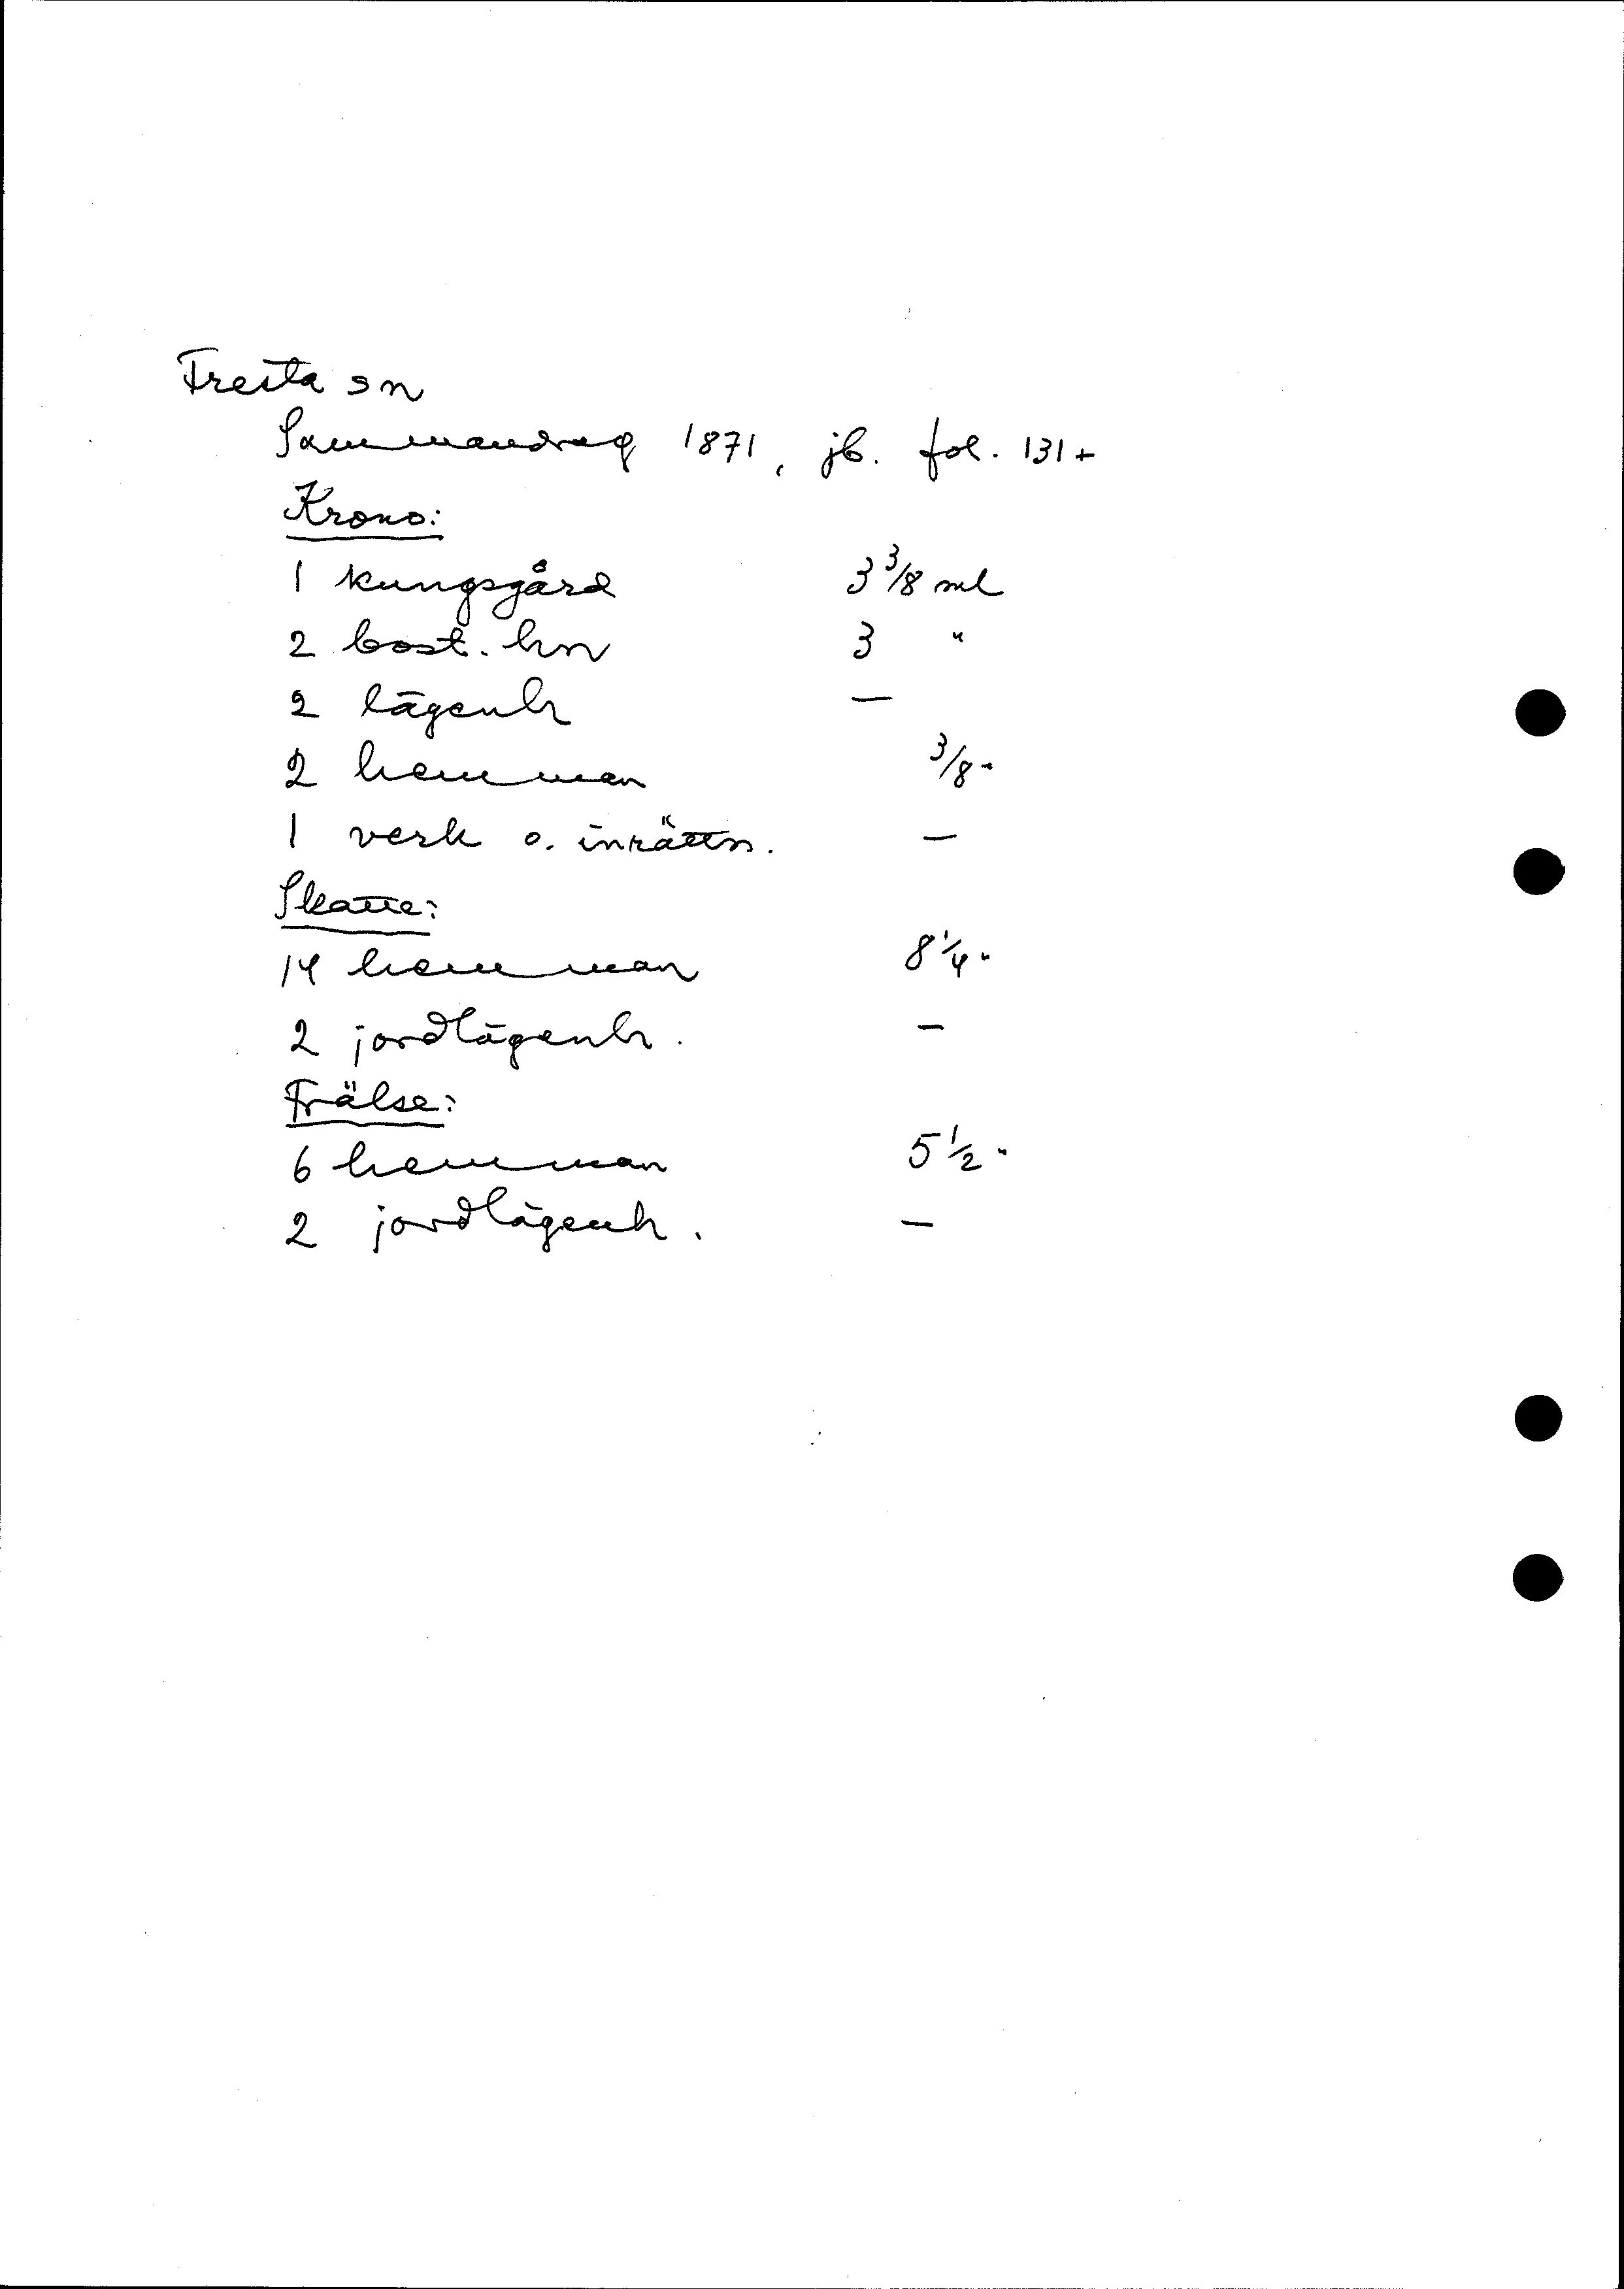 Fresta sn
Sammandrag 1871, jb. fol. 131+
Krono:
1 kungsgård 3 3/8 ml
2 bost. hn 3 "
2 lägenh —
2 hemman 3/8 "
1 verk o. inrättn. —
Skatte:
14 hemman 8 1/4 "
2 jordlägenh. —
Frälse:
6 hemman 5 1/2 "
2 jordlägenh. —